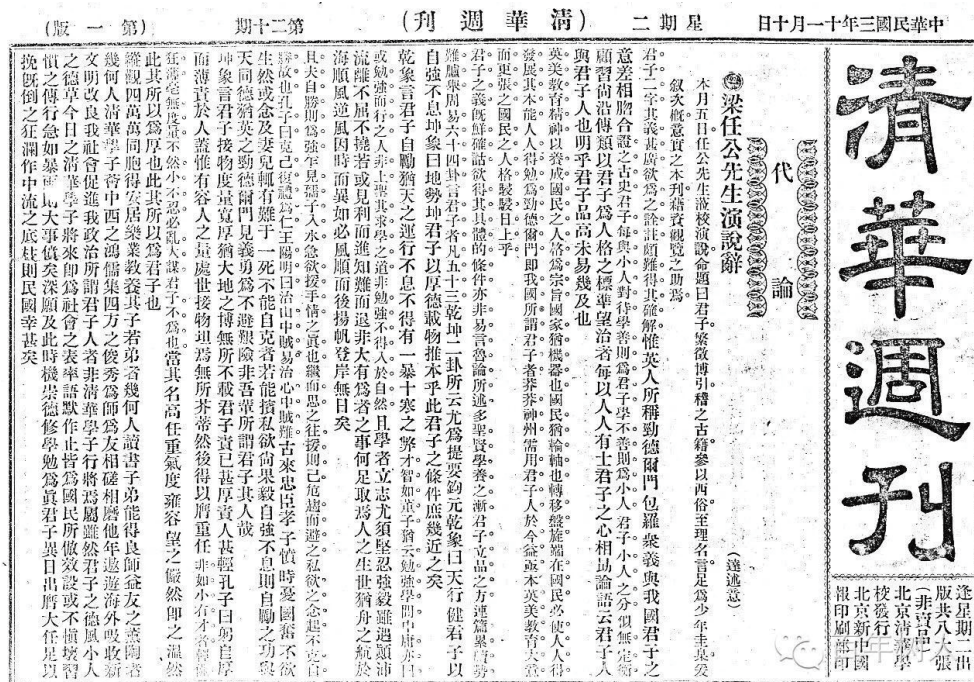 中華民國三年十一月十日
星期二
(清華週刊)
第二十期
(第一版)
清華週刊
逢星期二出
版共八大張
(非賣品)
北京清華學
校發行
北京新中國
報印刷部印
代論
梁任公先生演說辭
(達述意)
本月五日任公先生蒞校演說命題曰君子繁徵博引稽之古籍參以西俗至理名言足為少年圭臬爰
敘次概意實之本刊藉資觀覽之助焉
君子二字其義甚廣欲為之詮註頗難得其確解惟英人所稱勁德爾門包羅衆義與我國君子之
意差相脗合證之古史君子每與小人對待學善則為君子學不善則為小人君子小人之分似無定衡
顧習尚沿傳類以君子為人格之標準望治者每以人人有士君子之心相勗論語云君子人
與君子人也明乎君子品高未易幾及也
英美教育精神以養成國民之人格為宗旨國家猶機器也國民猶輪軸也轉移盤旋端在國民必使人人得
發展其本能人人得勉為勁德爾門即我國所謂君子者莽莽神州需用君子人於今益亟本英美教育大意
而更張之國民之人格駸駸日上乎
君子之義既鮮確詁欲得其具體的條件亦非易言魯論所述多聖賢學養之漸君子立品之方連篇累牘勢
難臚舉周易六十四卦言君子者凡五十三乾坤二卦所云尤為提要鈎元乾象曰天行健君子以
自強不息坤象曰地勢坤君子以厚德載物推本乎此君子之條件庶幾近之矣
乾象言君子自勵猶天之運行不息不得有一暴十寒之弊才智如董子猶云勉強學問中庸亦曰
或勉強而行之人非上聖其求學之道非勉強不得入於自然且學者立志尤須堅忍強毅雖遇顛沛
流離不屈不撓若或見利而進知難而退非大有為者之事何足取焉人之生世猶舟之航於
海順風逆風因時而異如必風順而後揚帆登岸無日矣
且夫自勝則為強乍見孺子入水急欲援手情之真也繼而思之往援則己危趨而避之私欲之念起不克自
勝故也孔子曰克己復禮為仁王陽明曰治山中賊易治心中賊難古來忠臣孝子憤時憂國奮不欲
生然或念及妻兒輒有難于一死不能自克者若能擯私欲尚果毅自強不息則自勵之功與
天同德猶英之勁德爾門見義勇為不避艱險非吾輩所謂君子其人哉
坤象言君子接物度量寬厚猶大地之博無所不載君子責己甚厚責人甚輕孔子曰躬自厚
而薄責於人蓋惟有容人之量處世接物坦焉無所芥蒂然後得以膺重任非如小有才者輕佻
狂薄毫無度量不然小不忍必亂大謀君子不為也當其名高任重氣度雍容望之儼然即之溫然
此其所以為厚也此其所以為君子也
縱觀四萬萬同胞得安居樂業教養其子若弟者幾何人讀書子弟能得良師益友之薰陶者
幾何人清華學子薈中西之鴻儒集四方之俊秀為師為友相磋相磨他年遨遊海外吸收新
文明改良我社會促進我政治所謂君子人者非清華學子行將焉屬雖然君子之德風小人
之德草今日之清華學子將來即為社會之表率語默作止皆為國民所倣效設或不愼壞習
慣之傳行急如暴雨則大事僨矣深願及此時機崇德修學勉為眞君子異日出膺大任足以
挽既倒之狂瀾作中流之底柱則民國幸甚矣